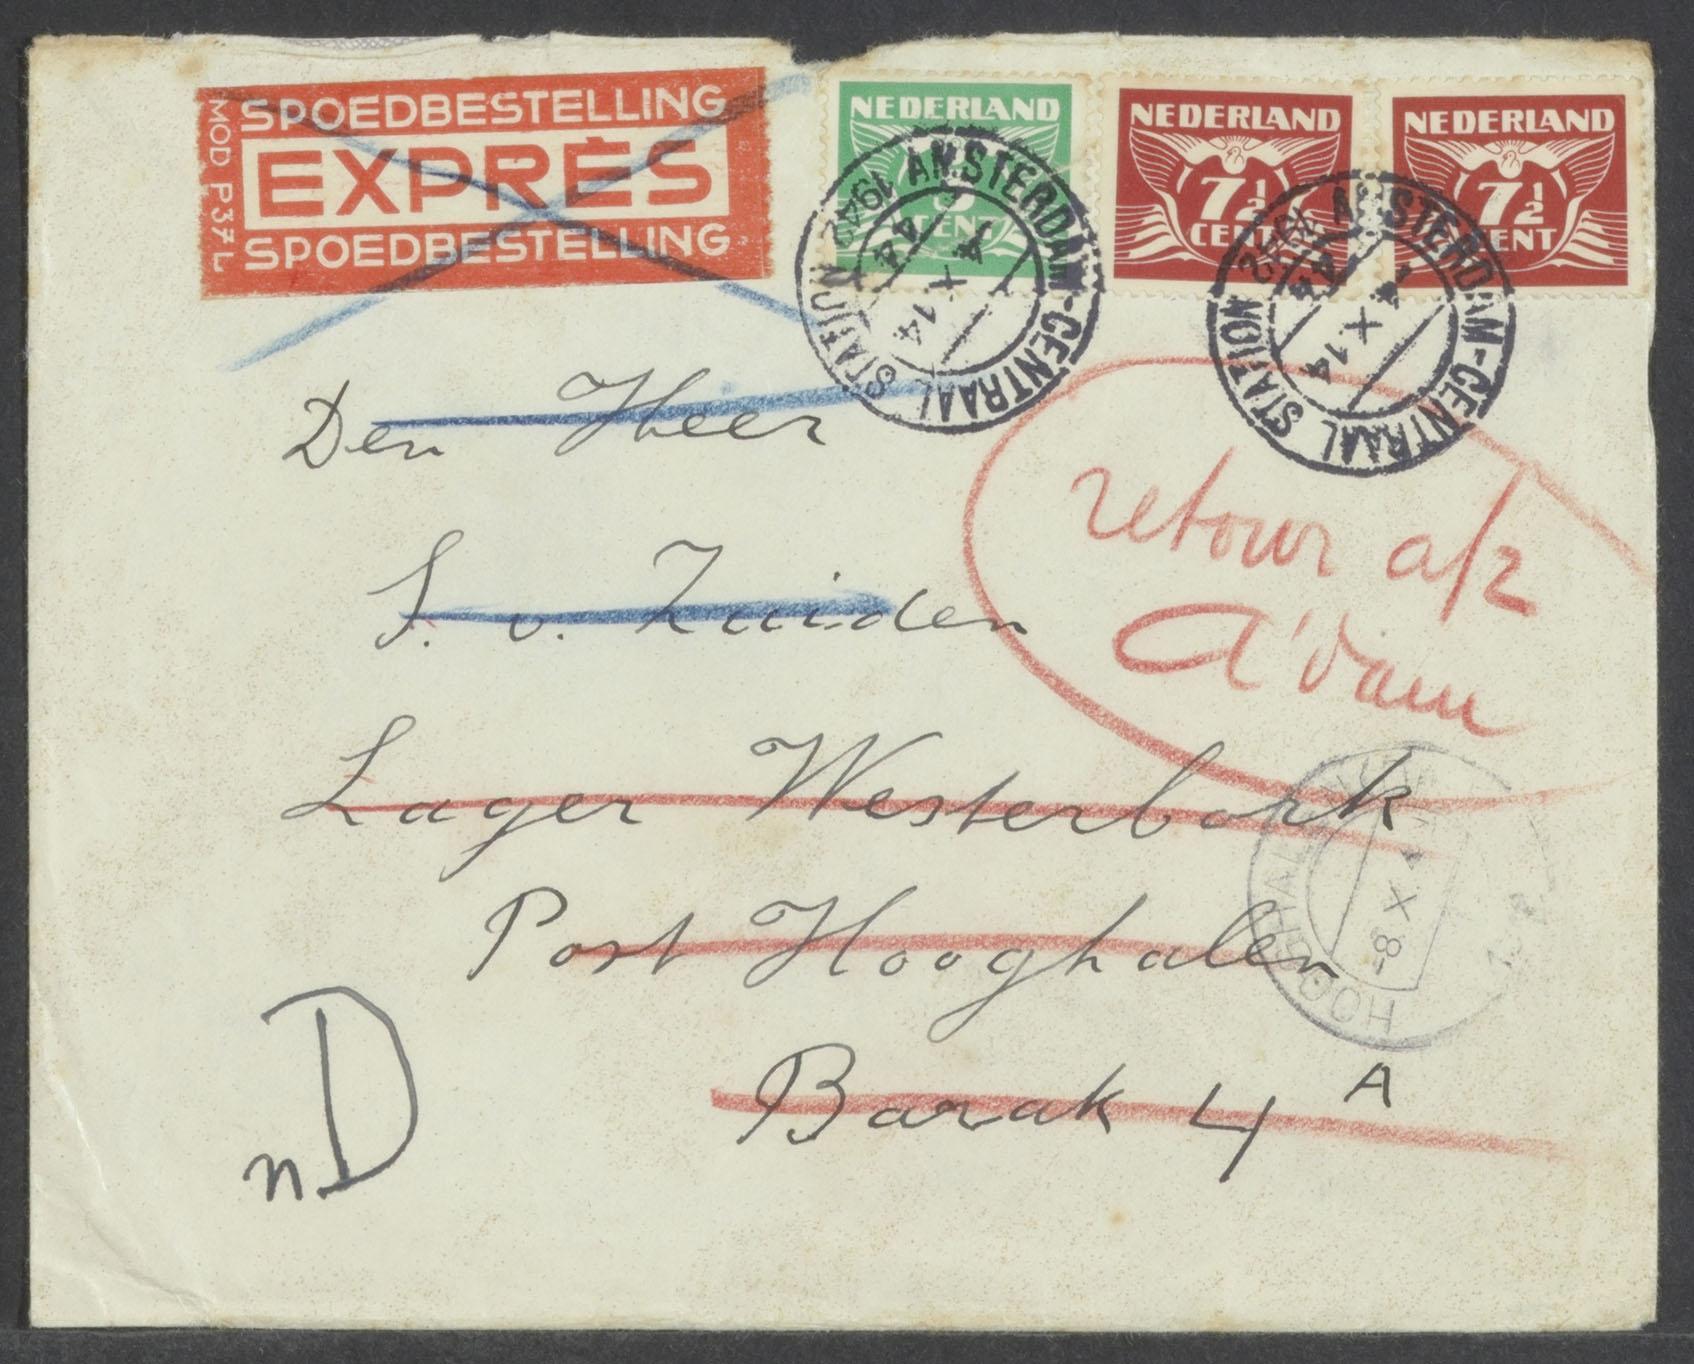 SPOEDBESTELLING
EXPRÈS
SPOEDBESTELLING
MOD P37 L
NEDERLAND
5
CENT
NEDERLAND
7½
CENT
NEDERLAND
7½
CENT
AMSTERDAM-CENTRAAL STATION
4 X 14
1942
AMSTERDAM-CENTRAAL STATION
4 X 14
1942
Den Heer
S. v. Zuiden
Lager Westerbork
Post Hooghalen
Barak 4 A
retour afz
A'dam
HOOGHALEN
8 X
nD